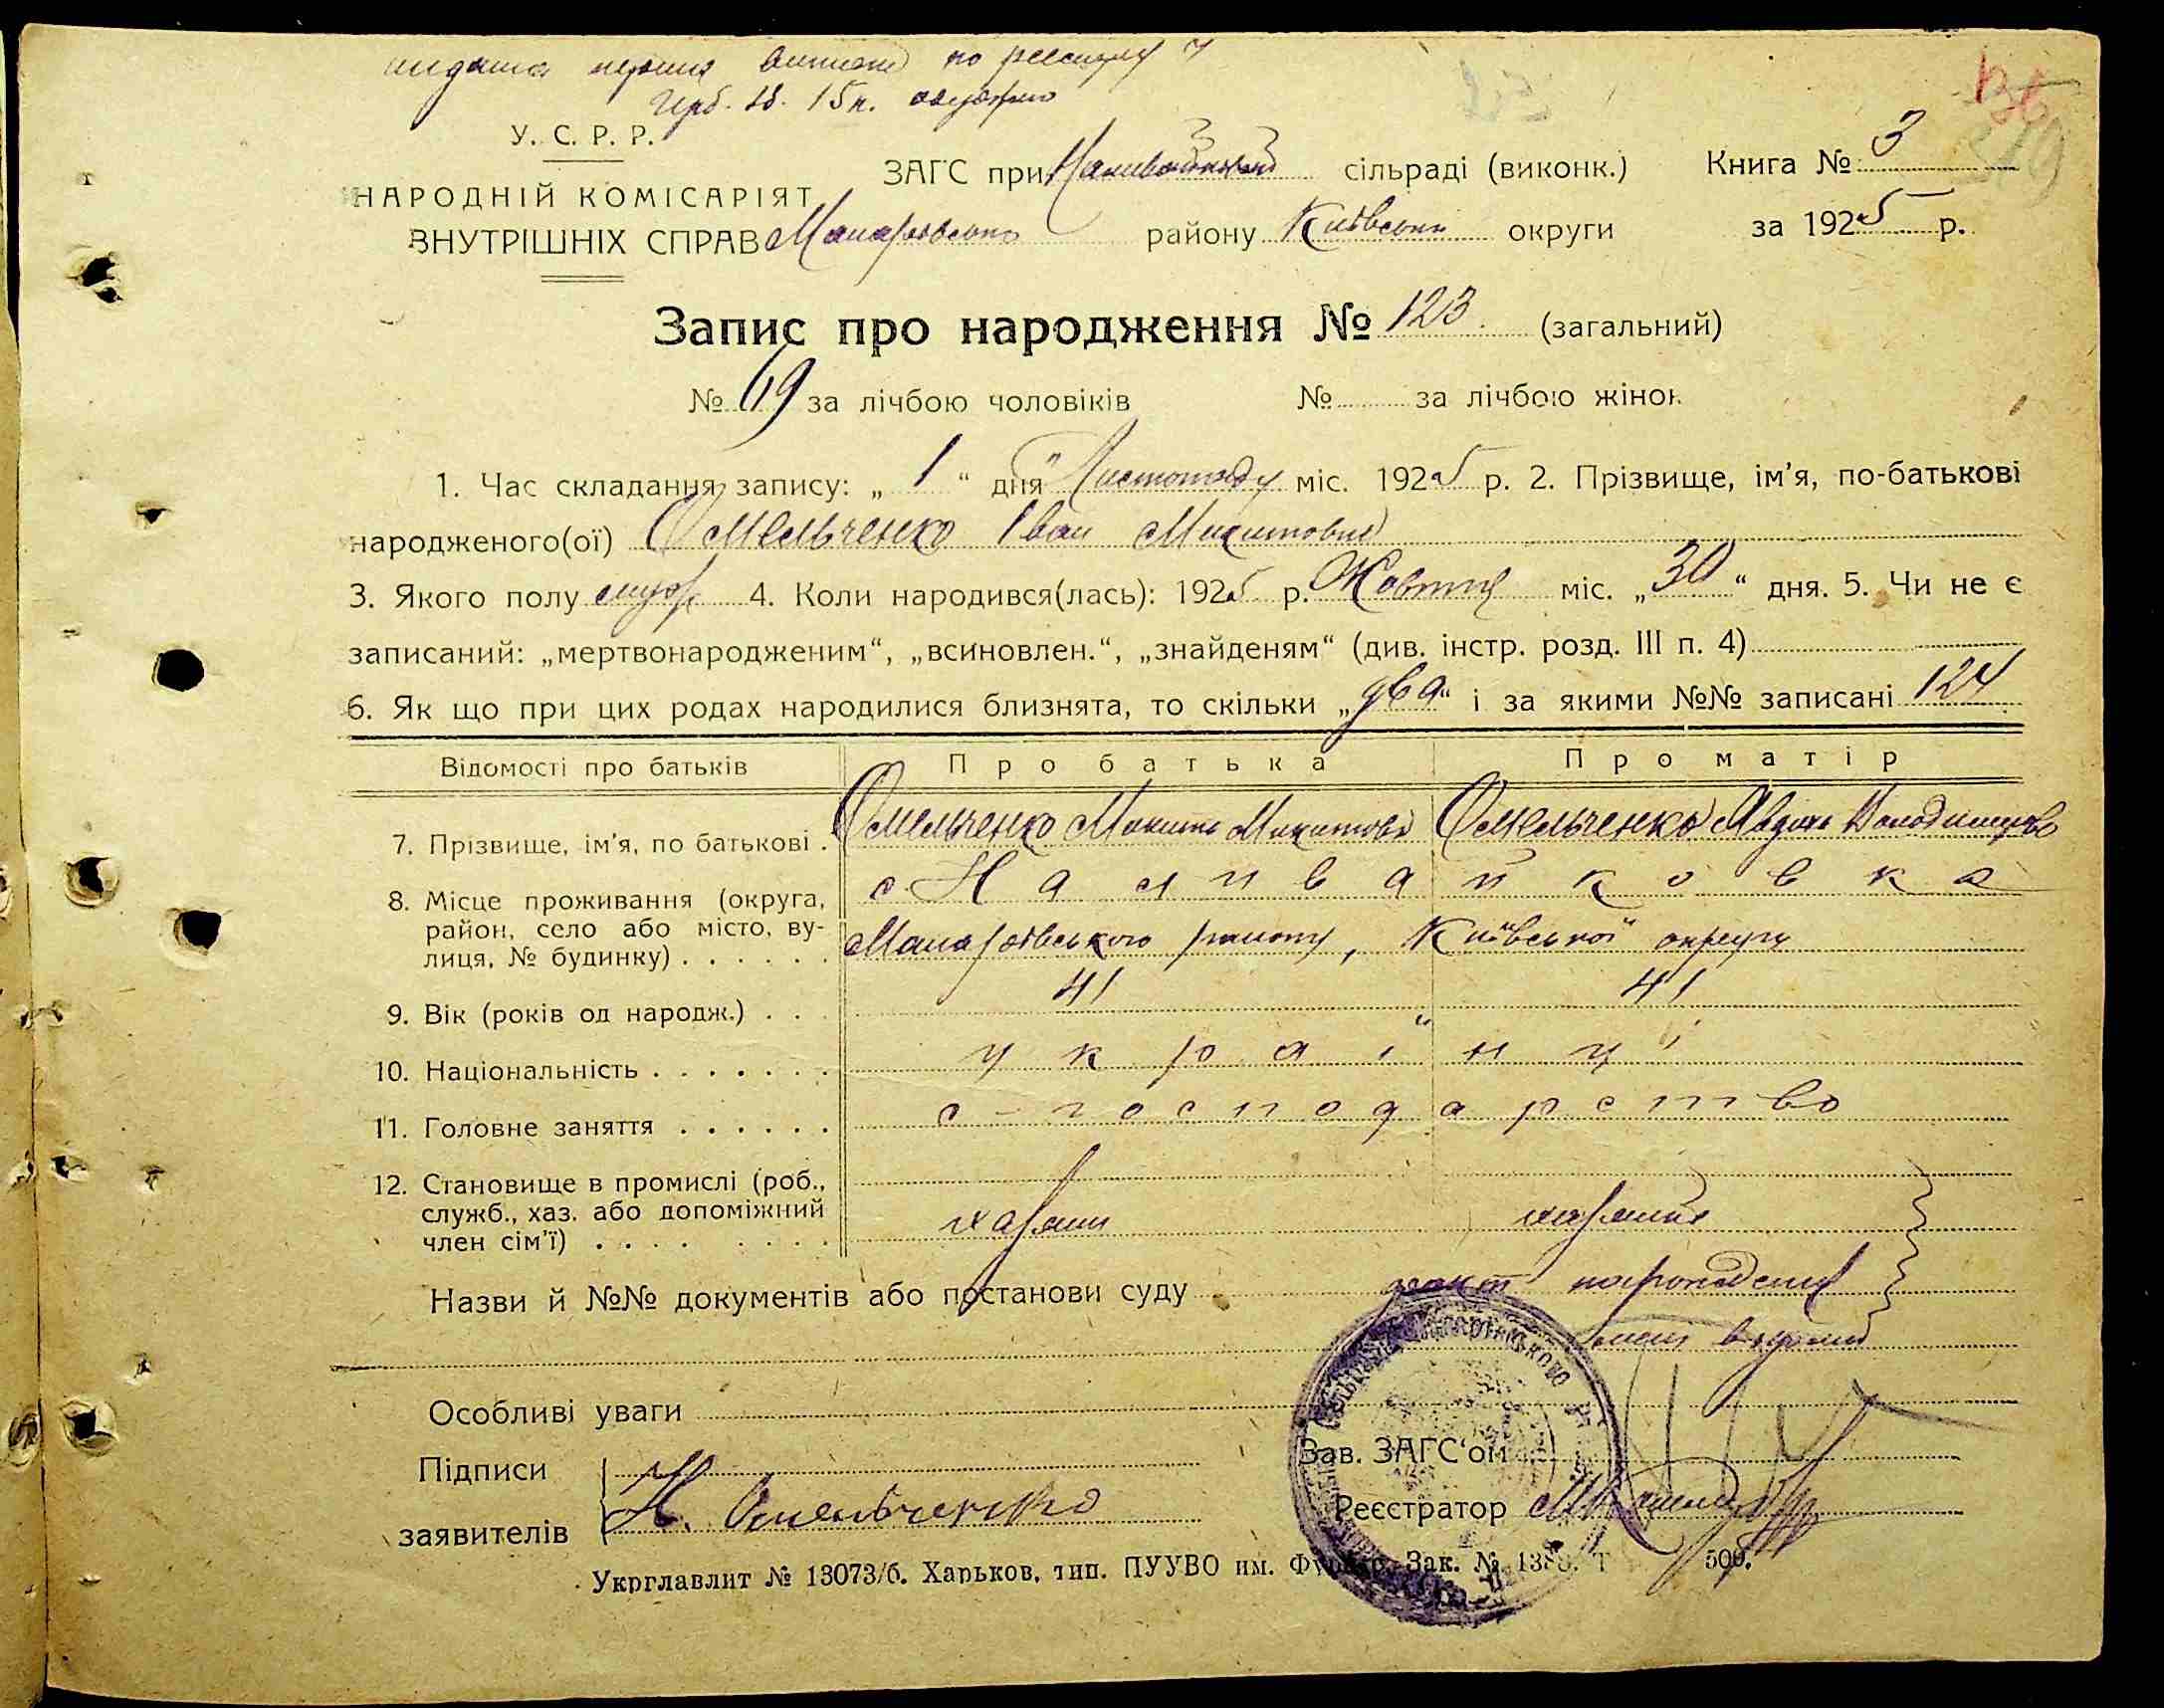 видана перша
15 к.
У. С. Р. Р.
НАРОДНІЙ КОМІСАРІЯТ
ВНУТРІШНІХ СПРАВ
ЗАГС при сільраді (виконк.)
Книга № 3
Макарівсько району Київсько округи
за 1925 р.
Запис про народження № 123. (загальний)
№ 69 за лічбою чоловіків № за лічбою жінок
1. Час складання запису: „ 1 “ дня Листопаду міс. 1925 р. 2. Прізвище, ім'я, по-батькові
народженого(ої) Омельченко Іван Микитович
3. Якого полу муж 4. Коли народився(лась): 1925 р. Жовтня міс. „ 30 “ дня. 5. Чи не є
записаний: „мертвонародженим“, „всиновлен.“, „знайденям“ (див. інстр. розд. III п. 4)
6. Як що при цих родах народилися близнята, то скільки „два“ і за якими №№ записані 124
Відомості про батьків Про батька Про матір
7. Прізвище, ім'я, по батькові . Омельченко Микита Микитов Омельченко Явдоха Володимиров
8. Місце проживання (округа, район, село або місто, вулиця, № будинку) . . . . . .
с. Наливайковка
Макарівського району, Київської округи
9. Вік (років од народж.) . . . 41 41
10. Національність . . . . . . . українці
11. Головне заняття . . . . . . с-господарство
12. Становище в промислі (роб., служб., хаз. або допоміжний член сім'ї) . . . .
Назви й №№ документів або постанови суду
Особливі уваги
Підписи
заявителів Н. Омельченко
Зав. ЗАГС'ом
Реєстратор
Укрглавлит № 13073/б. Харьков, тип. ПУУВО им. Фрунзе. Зак. №